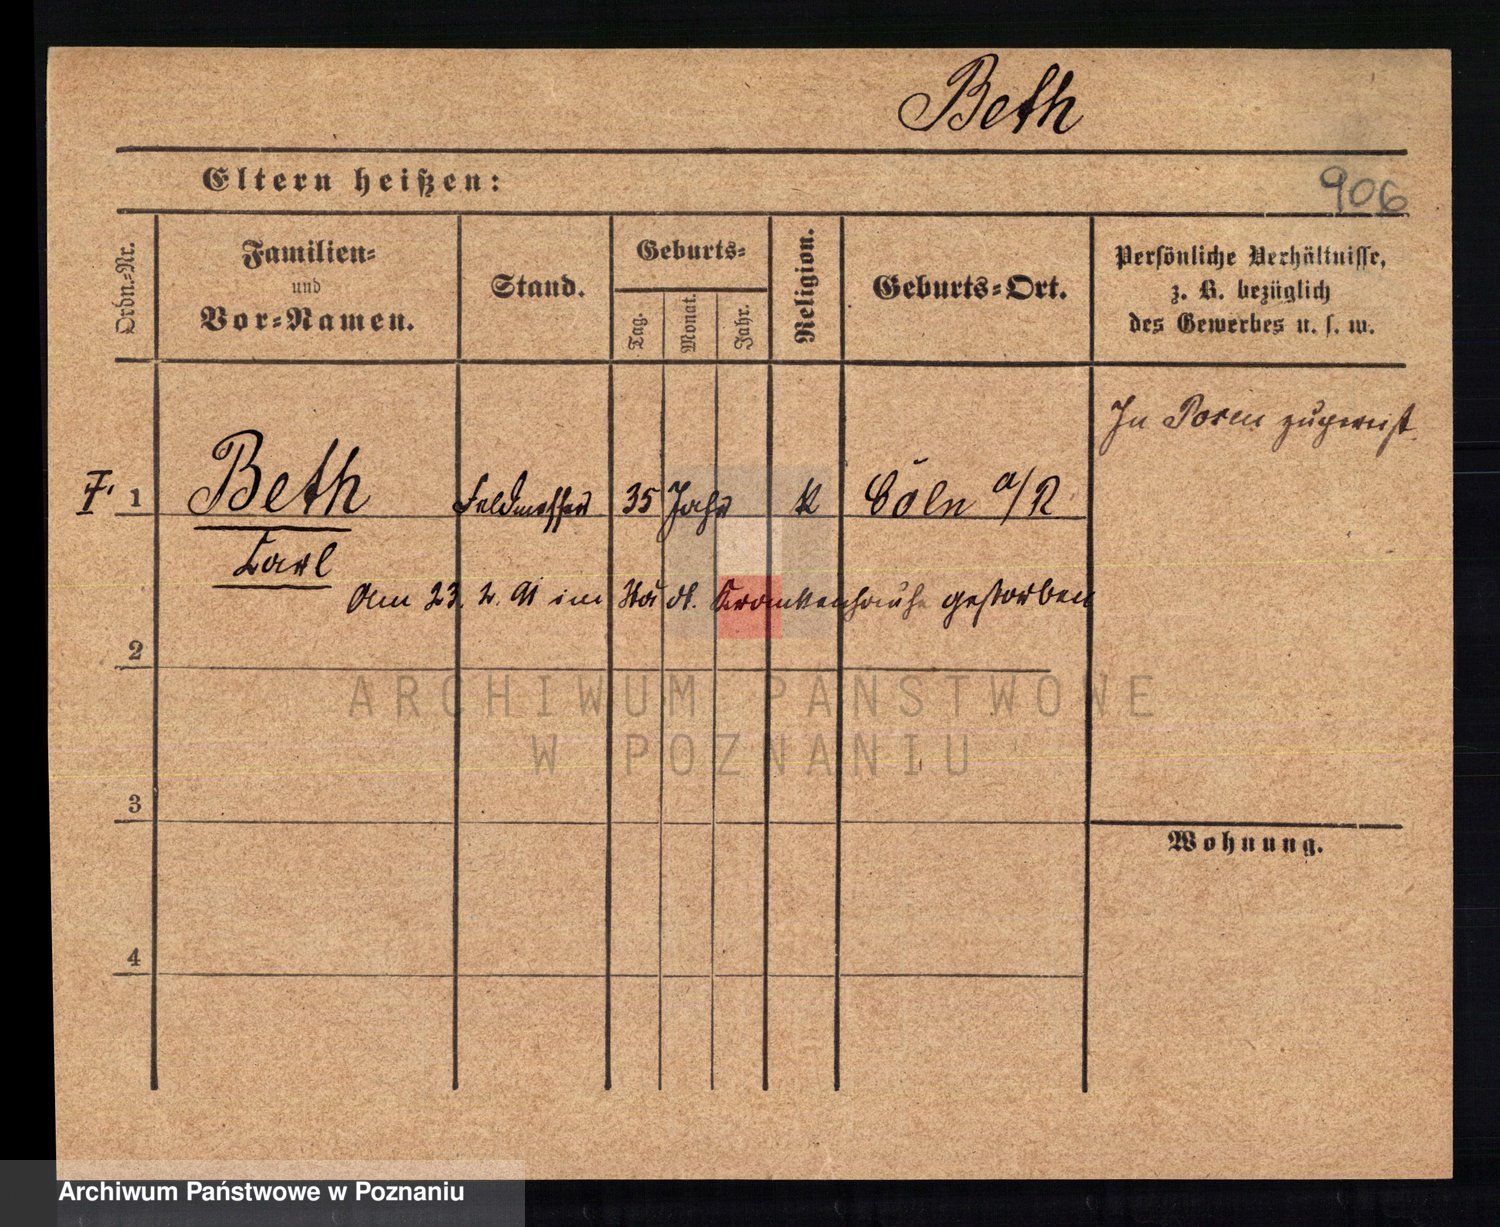 Beth
Eltern heißen:
906
Ordn.-Nr.
Familien-
und
Vor-Namen.
Stand.
Geburts-
Tag.
Monat.
Jahr.
Religion.
Geburts-Ort.
Persönliche Verhältnisse,
z. B. bezüglich
des Gewerbes u. s. w.
In Posen zugereist
1 Beth Feldmesser 35 Jahr k Cöln a/R
Carl
Am 23. 2. 91 im Städt. Krankenhause gestorben
2
ARCHIWUM PAŃSTWOWE
W POZNANIU
3
Wohnung.
4
Archiwum Państwowe w Poznaniu